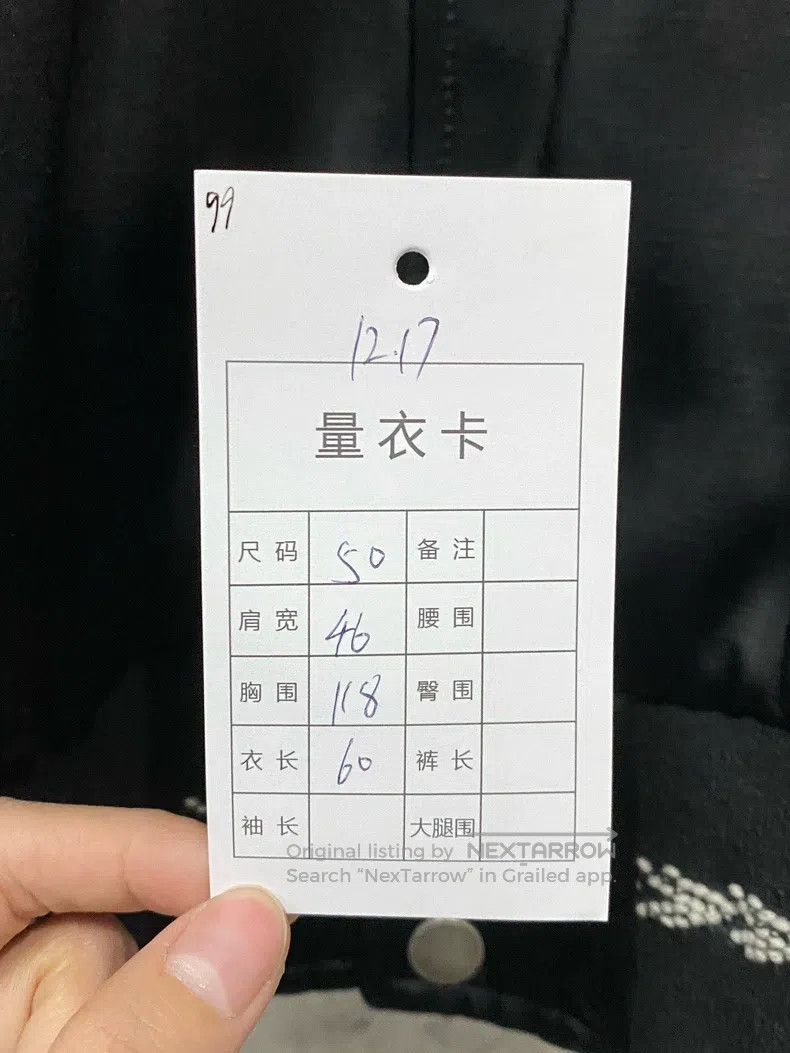 99
12.17
量衣卡
尺码 50 备注
肩宽 46 腰围
胸围 118 臀围
衣长 60 裤长
袖长 大腿围
Original listing by NEXTARROW
Search “NexTarrow” in Grailed app.